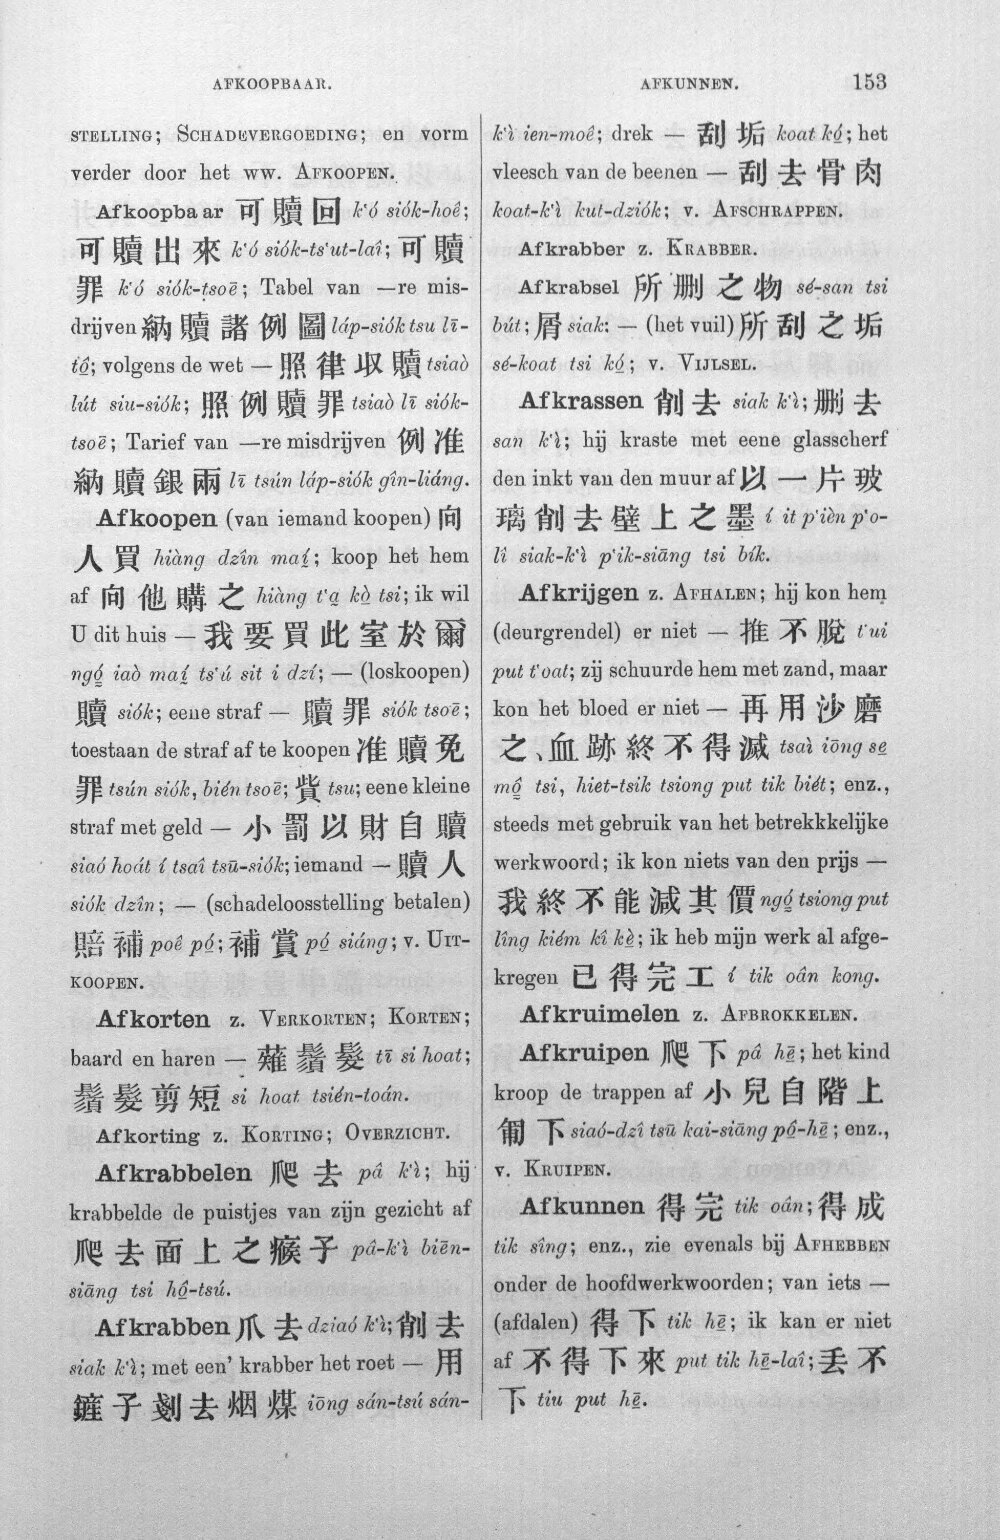 AFKOOPBAAR.
AFKUNNEN. 153
STELLING; SCHADEVERGOEDING; en vorm
verder door het ww. AFKOOPEN.
Afkoopbaar 可贖回 k‘ó siók-hoê;
可贖出來 k‘ó siók-ts‘ut-laî; 可贖
罪 k‘ó siók-tsoē; Tabel van —re mis-
drijven 納贖諸例圖 láp-siók tsu lī-
tô; volgens de wet — 照律収贖 tsiaò
lút siu-siók; 照例贖罪 tsiaò lī siók-
tsoē; Tarief van —re misdrijven 例准
納贖銀兩 lī tsún láp-siók gîn-liáng.
Afkoopen (van iemand koopen) 向
人買 hiàng dzîn maí; koop het hem
af 向他購之 hiàng t‘a kò tsi; ik wil
U dit huis — 我要買此室於爾
ngó iaò maí ts‘ú sit i dzí; — (loskoopen)
贖 siók; eene straf — 贖罪 siók tsoē;
toestaan de straf af te koopen 准贖免
罪 tsún siók, bién tsoē; 貲 tsu; eene kleine
straf met geld — 小罰以財自贖
siaó hoát í tsaî tsū-siók; iemand — 贖人
siók dzîn; — (schadeloosstelling betalen)
賠補 poê pó; 補賞 pó siáng; v. UIT-
KOOPEN.
Afkorten z. VERKORTEN; KORTEN;
baard en haren — 薙鬚髮 tī si hoat;
鬚髮剪短 si hoat tsién-toán.
Afkorting z. KORTING; OVERZICHT.
Afkrabbelen 爬去 pâ k‘ì; hij
krabbelde de puistjes van zijn gezicht af
爬去面上之瘊子 pâ-k‘ì biēn-
siāng tsi hô-tsú.
Afkrabben 爪去 dziaó k‘ì; 削去
siak k‘ì; met een’ krabber het roet — 用
鏟子剗去烟煤 iōng sán-tsú sán-
k‘ì ien-moê; drek — 刮垢 koat kó; het
vleesch van de beenen — 刮去骨肉
koat-k‘ì kut-dziók; v. AFSCHRAPPEN.
Afkrabber z. KRABBER.
Afkrabsel 所刪之物 sé-san tsi
bút; 屑 siak: — (het vuil) 所刮之垢
sé-koat tsi kó; v. VIJLSEL.
Afkrassen 削去 siak k‘ì; 刪去
san k‘ì; hij kraste met eene glasscherf
den inkt van den muur af 以一片玻
璃削去壁上之墨 í it p‘ièn p‘o-
lî siak-k‘ì p‘ik-siāng tsi bík.
Afkrijgen z. AFHALEN; hij kon hem
(deurgrendel) er niet — 推不脫 t‘ui
put t‘oat; zij schuurde hem met zand, maar
kon het bloed er niet — 再用沙磨
之、血跡終不得滅 tsaì iōng se
mô tsi, hiet-tsik tsiong put tik biét; enz.,
steeds met gebruik van het betrekkkelijke
werkwoord; ik kon niets van den prijs —
我終不能減其價 ngó tsiong put
lîng kiém kî kè; ik heb mijn werk al afge-
kregen 已得完工 í tik oân kong.
Afkruimelen z. AFBROKKELEN.
Afkruipen 爬下 pâ hē; het kind
kroop de trappen af 小兒自階上
匍下 siaó-dzî tsū kai-siāng pô-hē; enz.,
v. KRUIPEN.
Afkunnen 得完 tik oân; 得成
tik sîng; enz., zie evenals bij AFHEBBEN
onder de hoofdwerkwoorden; van iets —
(afdalen) 得下 tik hē; ik kan er niet
af 不得下來 put tik hē-laî; 丢不
下 tiu put hē.